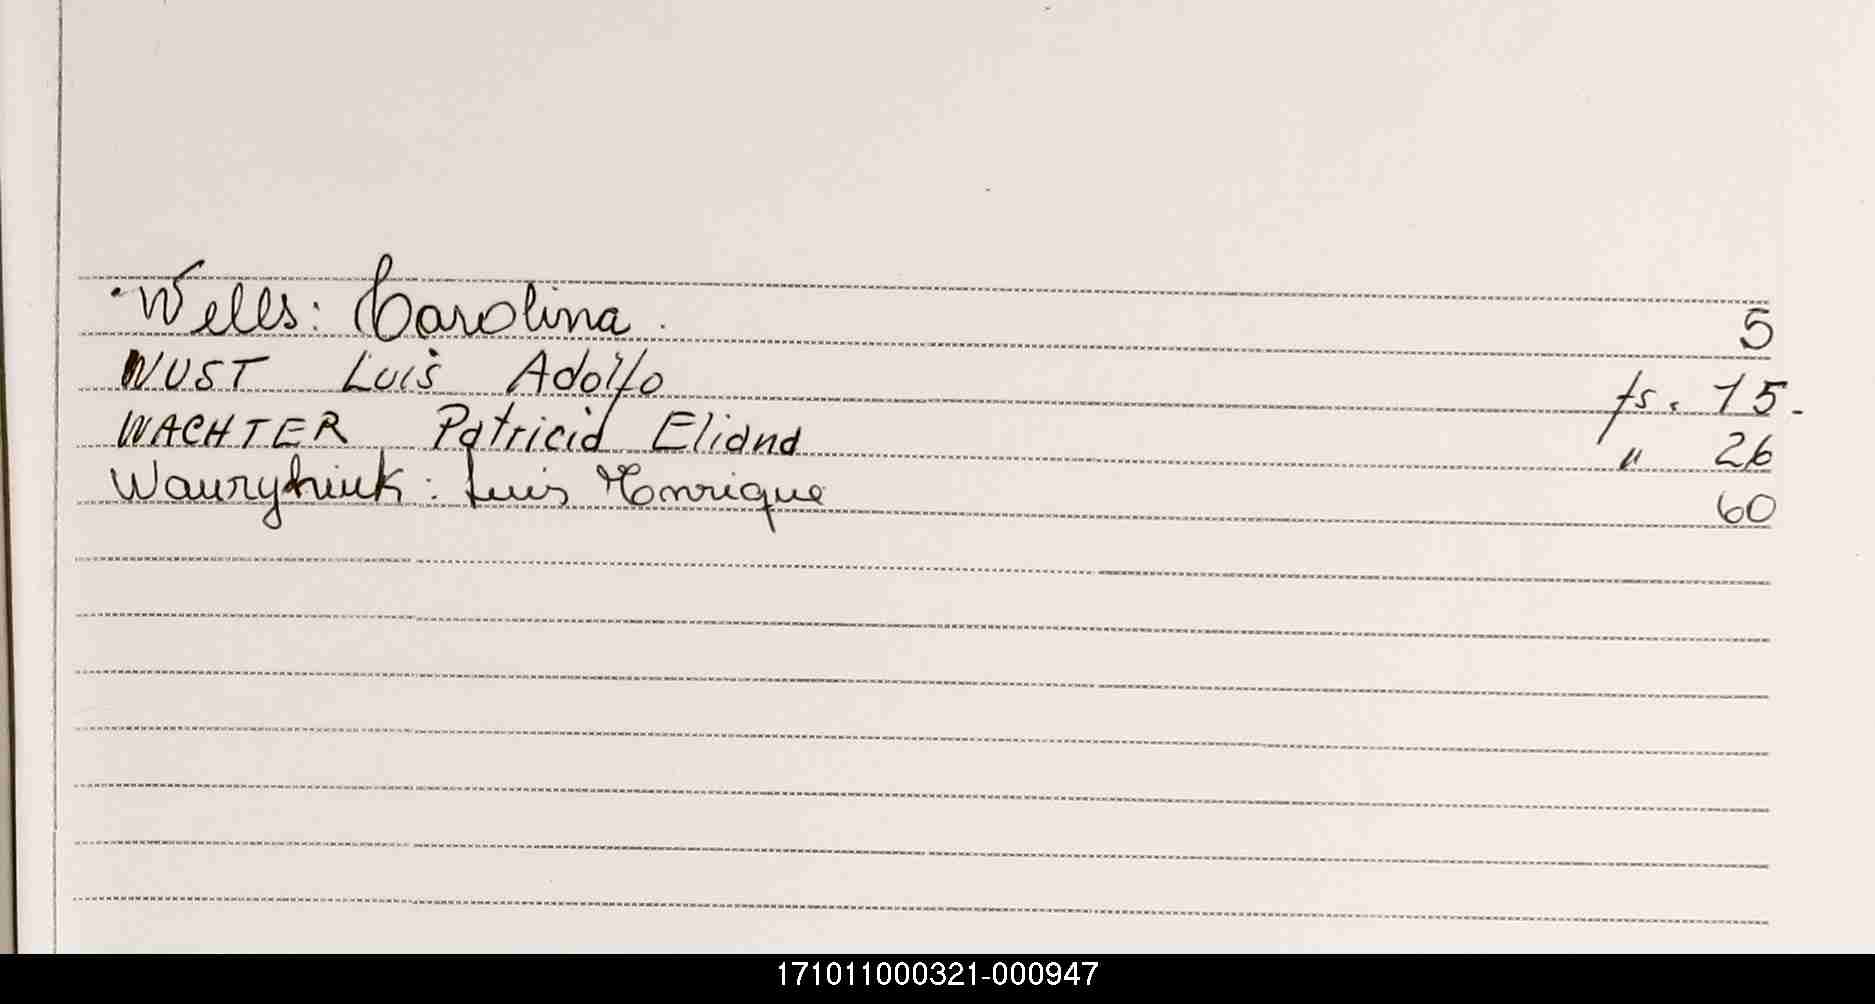 Wells: Carolina. 5
WUST Luis Adolfo fs. 15.
WACHTER Patricia Eliana " 26
Luis Henrique 60
171011000321-000947